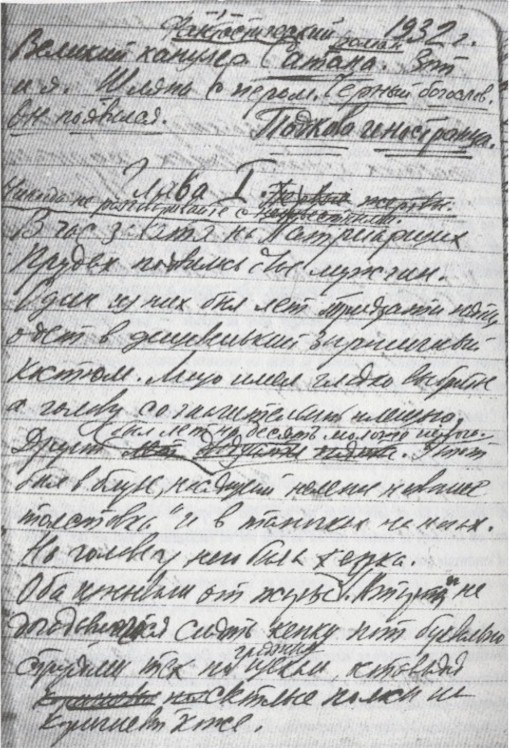 Фантастический роман 1932 г.
Великий канцлер. Сатана. Вот
и я. Шляпа с пером. Черный богослов.
Он появился. Подкова иностранца.
Глава I. Первые жертвы.
Никогда не разговаривайте с неизвестными.
В час заката на Патриарших
Прудах появились двое мужчин.
Один из них был лет тридцати пяти,
одет в дешевенький заграничный
костюм. Лицо имел гладко выбритое,
а голову со значительной плешью.
был лет на десять моложе первого.
Другой Этот
был в блузе, носящей нелепое название
"толстовка" и в тапочках на ногах.
На голове у него была кепка.
Оба изнывали от жары. У второго, не
догадавшегося снять кепку, пот буквально
грязным
струями тек по щекам, оставляя
светлые полосы на
коричневой коже.